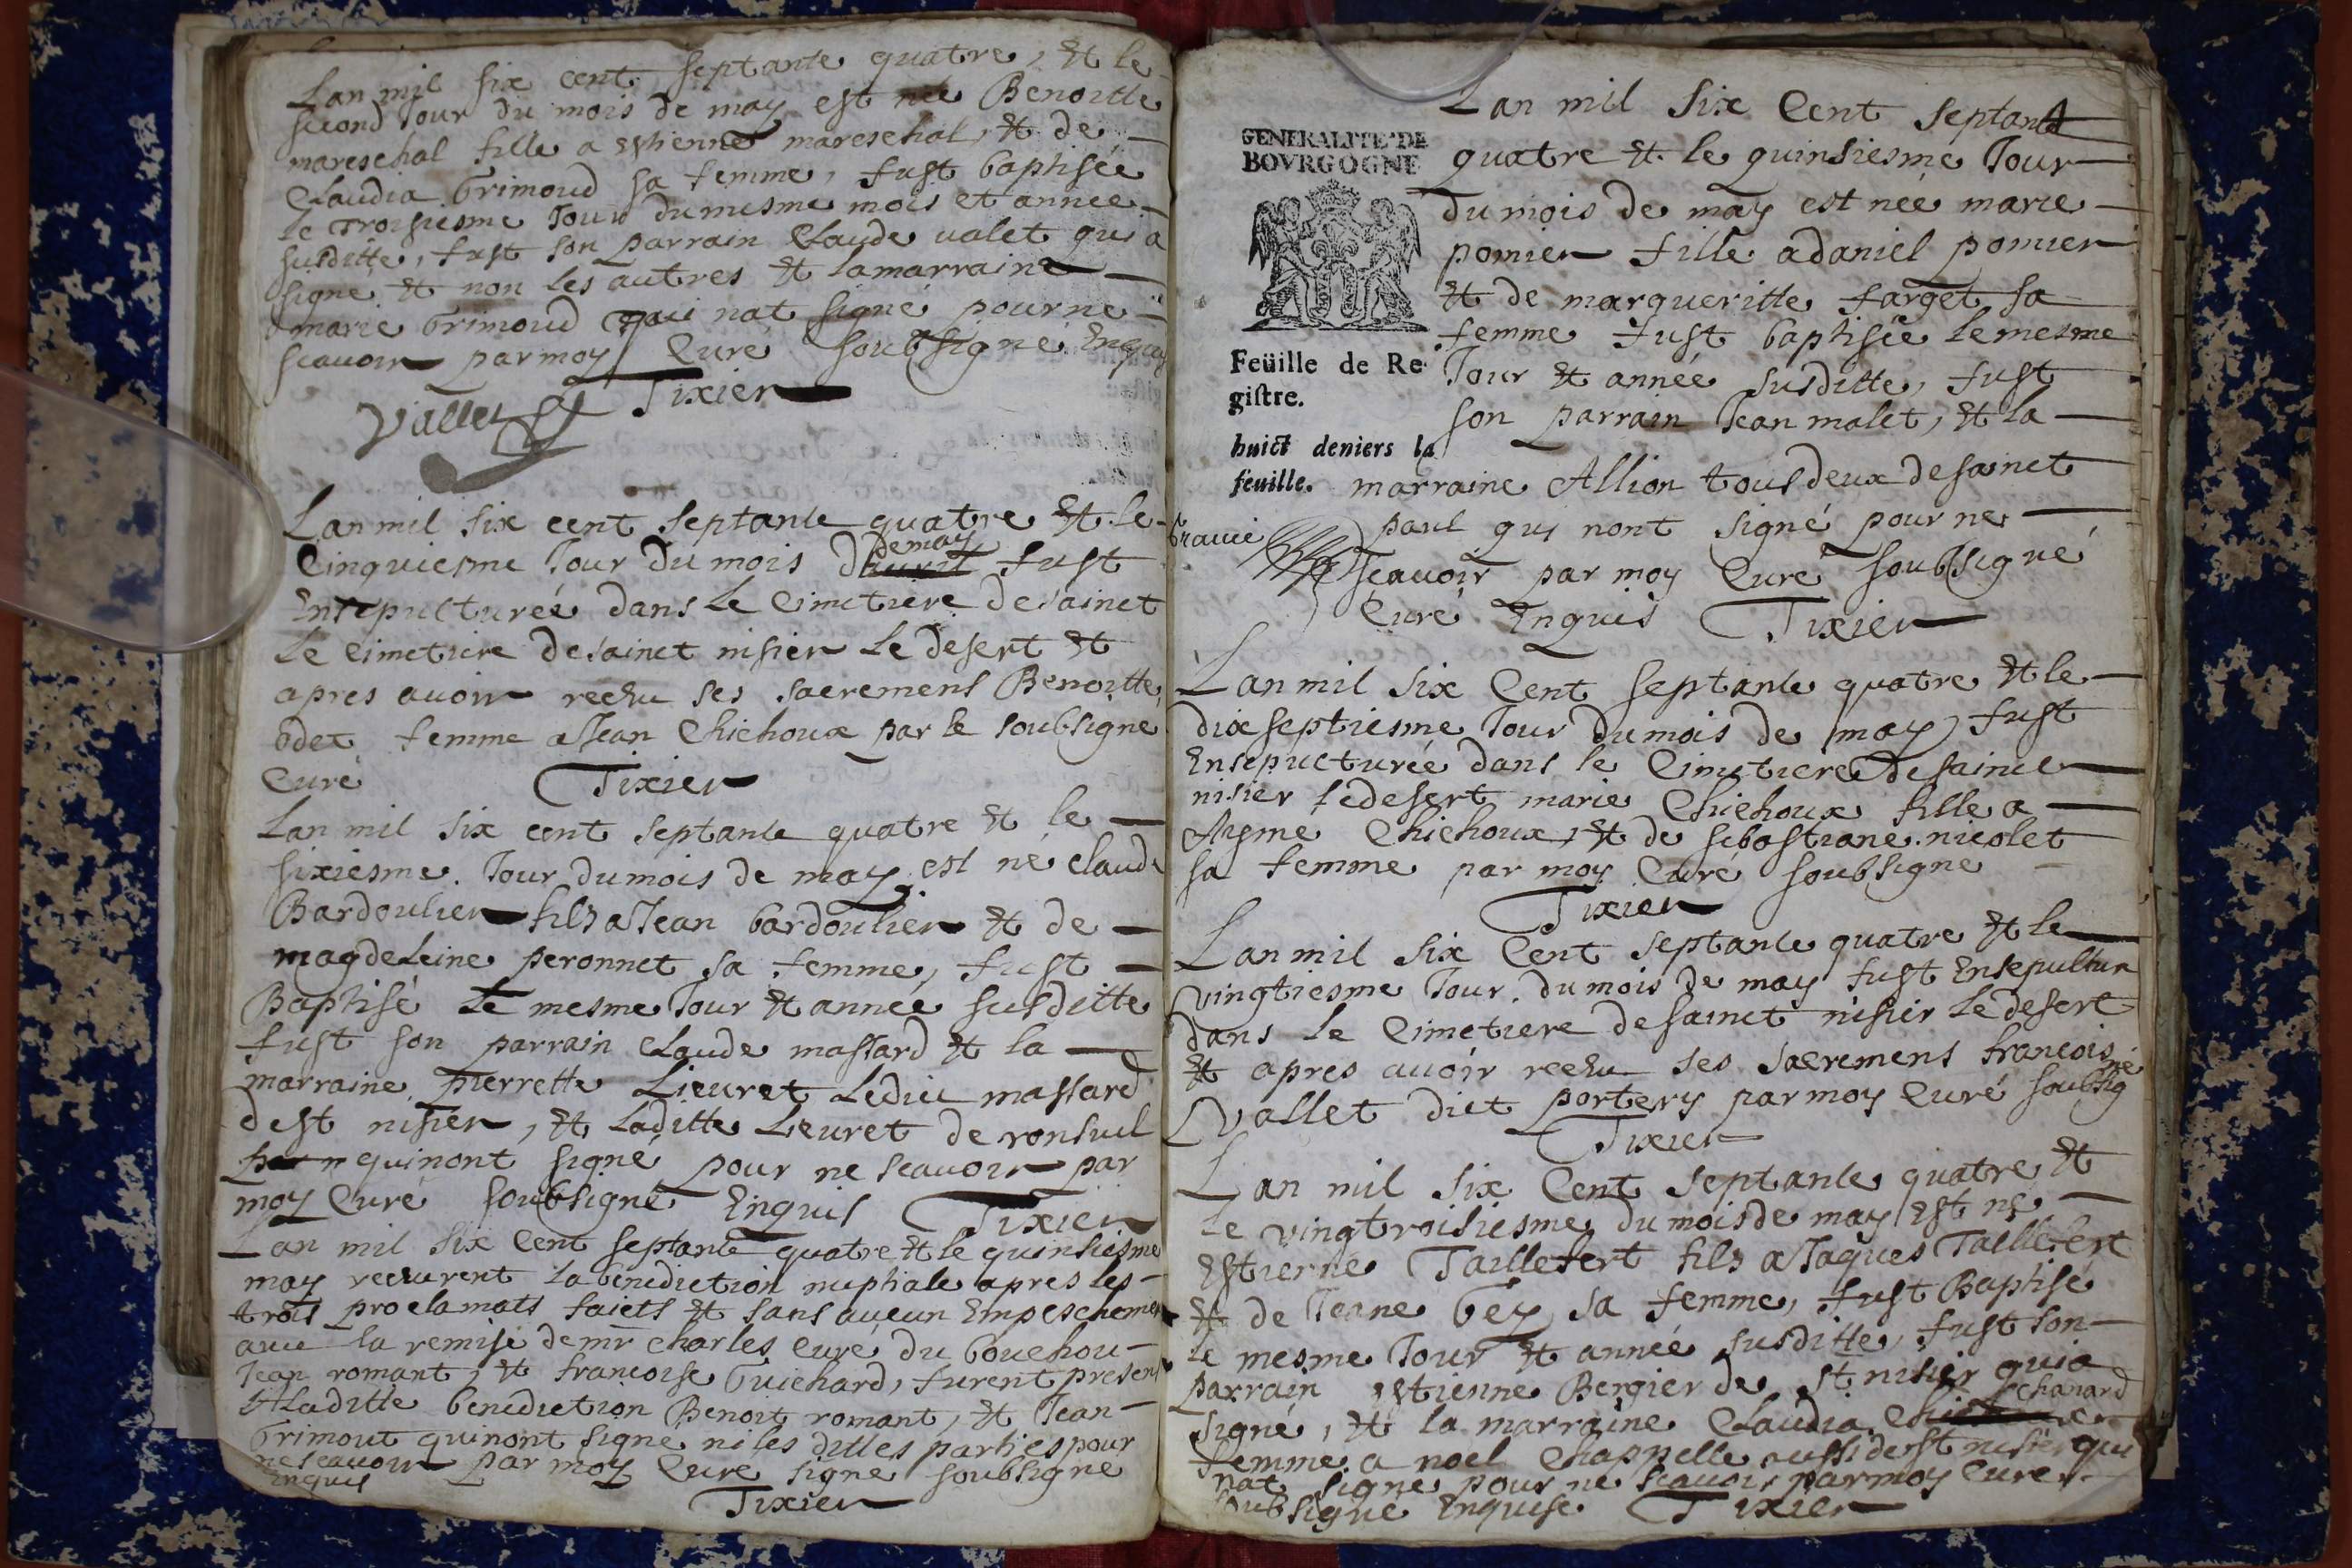 Lan mil six cent septante quatre, Et le
second Jour du mois de may est née Benoitte
mareschal fille a estienne mareschal, Et de
Claudia Grimoud sa femme, fust baptisée
le Troisiesme Jour dumesme mois et année
susditte, fust son parrain Claude valet qui a
signe Et non les autres Et lamarraine
marie Grimoud qui nat signé pourne
scavoir parmoy Curé soubsigné Enquis
Tixier
Vallet
Lanmil six cent septante quatre Et le
demay
Cinquiesme Jour Du mois Dauvril fust
Ensepulturée dans Le Cimetiere desainct
Le Cimetiere desainct nisier Le desert Et
apres avoir receu ses sacremens Benoitte
odet femme aJean Chichoux par le soubsigné
Curé Tixier
Lan mil six cent septante quatre Et le
sixiesme Jour dumois de may est né claude
Bardoulier fils aJean bardoulier Et de
magdeleine peronnet sa femme, fust
Baptisé Le mesme Jour Et année susditte
fust son parrain Claude massard Et la
marraine pierrette Lieuret Ledict massard
dest nisier, Et Laditte Leuret de ronsuel
quinont signé pour ne scavoir par
moy Curé soubsigné Enquis Tixier
Lan mil six Cent septante quatre Et le quinsiesme
may receurent la benediction nuptiale apres les
trois proclamats faicts Et sans aucun Empeschement
avec la remise demr Charles Curé du bouchou
Jean romant, Et francoise Guichard, furent present
ALaditte benediction Benoit romant, Et Jean
Grimout quinont signé niles dittes parties pour
ne scavoir par moy Curé signé soubsigné
enquis
Tixier
Lan mil six Cent septante
GENERALITE DE
BOVRGOGNE
quatre Et le quinsiesme Jour
du mois de may est née marie
pomier fille adaniel pomier
Et de margueritte farget sa
femme fust baptisée lemesme
Feüille de Re-
giſtre.
Jour Et année susditte, fust
son parrain Jean malet, Et la
huict deniers la
feuille.
marraine Allion tousdeux desainct
paul qui nont signé pour ne
scavoir par moy Curé soubsigné
Curé Enquis Tixier
Lanmil six Cent septante quatre Et le
dixseptiesme Jour Dumois de may, fust
Ensepulturée dans le Cimetiere desainct
nisier Ledesert marie Chichoux fille a
Aysme Chichoux, Et de sebastiane nicolet
sa femme par moy Curé soubsigné
Tixier
Lanmil six Cent septante quatre Et le
vingtiesme Jour dumois de may fust Ensepultur
dans le Cimetiere desainct nisier Ledesert
Et apres avoir receu ses sacremens francois
Vallet dict portery parmoy Curé soubsig
né
Tixier
Lan mil six Cent septante quatre Et
Le vingtroisiesme dumoisde may Est né
Estienne Taillefert fils aJaques Taillefert
Et de Jeane Gey sa femme, fust Baptisé
le mesme Jour Et année susditte, fust son
parrain estienne Bergier de st nisier quia
chanard
signé, Et la marraine Claudia
femme a noel Chappelle aussi dest nisier qui
nat signe pour ne scavoir parmoy Curé
soubsigné Enquise Tixier